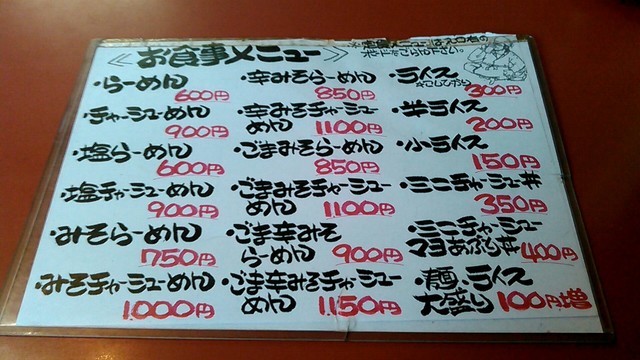 お食事メニュー
・らーめん
600円
・チャーシューめん
900円
・塩らーめん
600円
・塩チャーシューめん
900円
・みそらーめん
750円
・みそチャーシューめん
1000円
・辛みそらーめん
850円
・辛みそチャーシュー
めん 1100円
・ごまみそらーめん
850円
・ごまみそチャーシュー
めん 1100円
・ごま辛みそ
らーめん 900円
・ごま辛みそチャーシュー
めん 1150円
・ライス
300円
・半ライス
200円
・小ライス
150円
・ミニチャーシュー丼
350円
・ミニチャーシュー
マヨあぶら丼 400円
・麺、ライス
大盛り 100円増